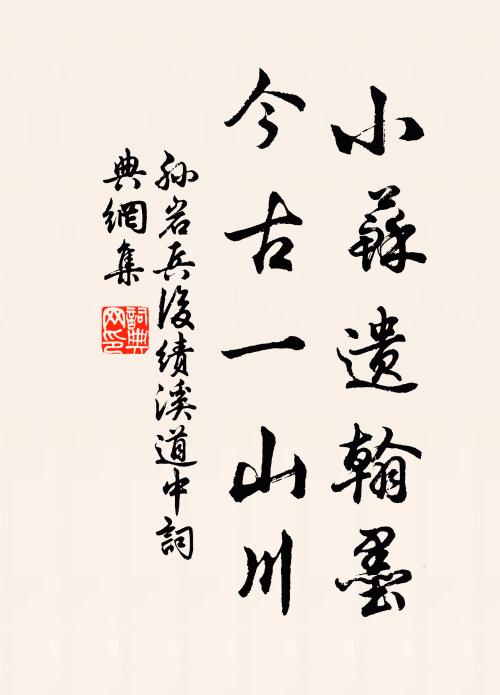 小蘇遺翰墨
今古一山川
孫岩兵後績溪道中詞
典網集
詞典網印